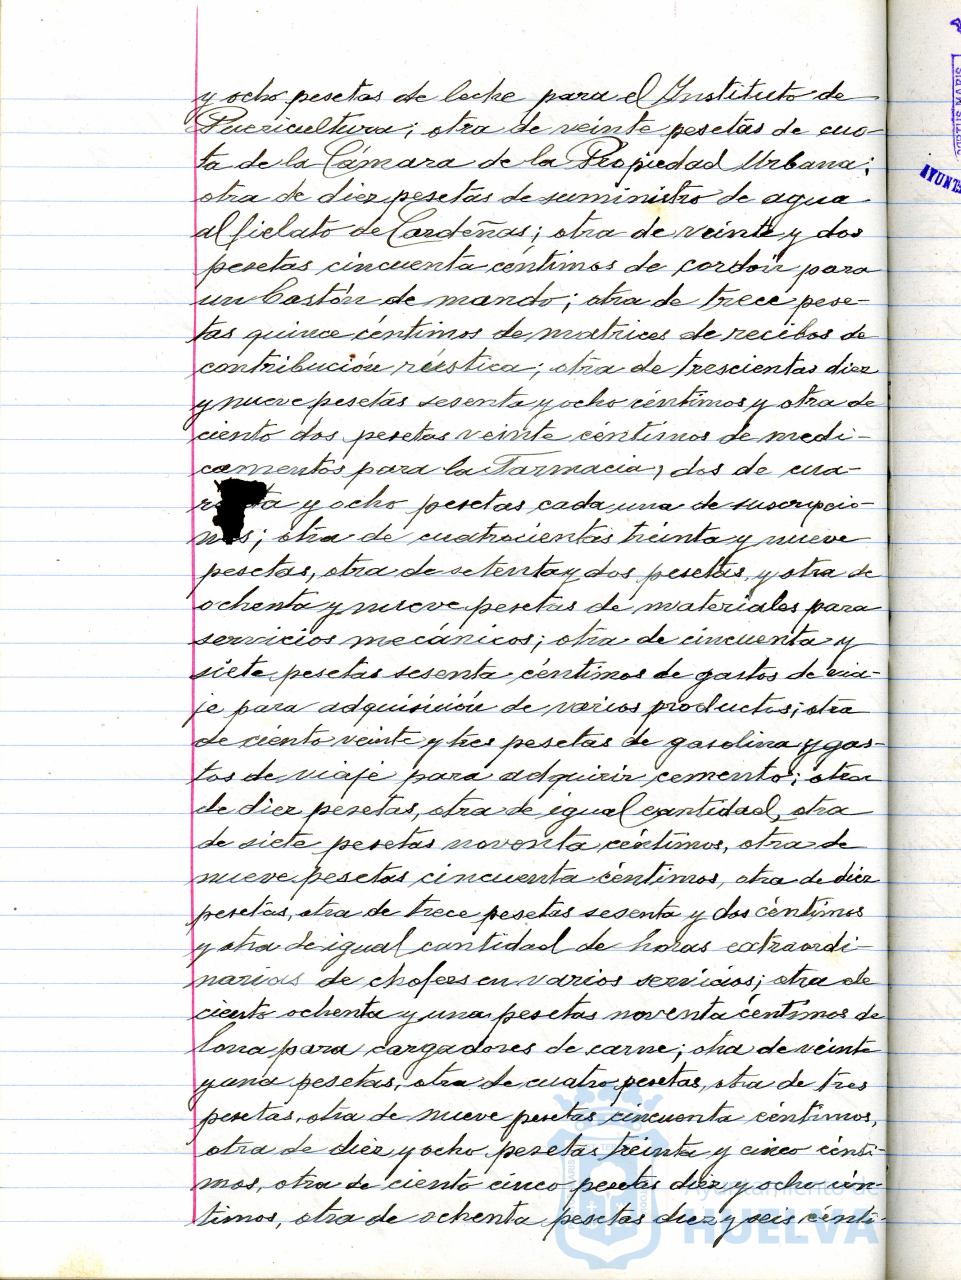 y ocho pesetas de leche para el Instituto de
Puericultura; otra de veinte pesetas de cuo-
ta de la Cámara de la Propiedad Urbana;
otra de diez pesetas de suministro de agua
al fielato de Cardeñas; otra de veinte y dos
pesetas cincuenta céntimos de cordón para
un bastón de mando; otra de trece pese-
tas quince céntimos de matrices de recibos de
contribución rústica; otra de trescientas diez
y nueve pesetas sesenta y ocho céntimos y otra de
ciento dos pesetas veinte céntimos de medi-
camentos para la Farmacia, dos de cua-
y ocho pesetas cada una de suscripcio-
nes; otra de cuatrocientas treinta y nueve
pesetas, otra de setenta y dos pesetas, y otra de
ochenta y nueve pesetas de materiales para
servicios mecánicos; otra de cincuenta y
siete pesetas sesenta céntimos de gastos de via-
je para adquisición de varios productos; otra
de ciento veinte y tres pesetas de gasolina y gas-
tos de viaje para adquirir cemento; otra
de diez pesetas, otra de igual cantidad, otra
de siete pesetas noventa céntimos, otra de
nueve pesetas cincuenta céntimos, otra de diez
pesetas, otra de trece pesetas sesenta y dos céntimos
y otra de igual cantidad de horas extraordi-
narias de chofees en varios servicios; otra de
ciento ochenta y una pesetas noventa céntimos de
lona para cargadores de carne; otra de veinte
y una pesetas, otra de cuatro pesetas, otra de tres
pesetas, otra de nueve pesetas cincuenta céntimos,
otra de diez y ocho pesetas treinta y cinco cénti-
mos, otra de ciento cinco pesetas diez y ocho cén-
timos, otra de ochenta pesetas diez y seis cénti-
Ayuntamiento de
HUELVA